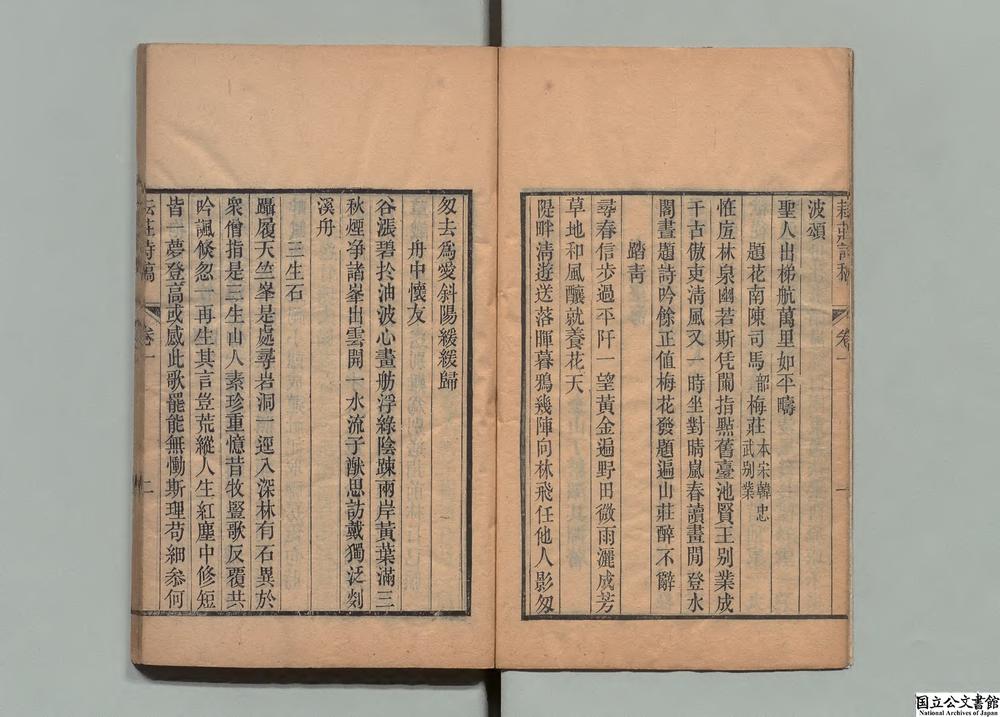 耘莊詩稿 卷 一
波頌
聖人出梯航萬里如平疇
題花南陳司馬韶梅莊 本宋韓忠
武别業
恠底林泉幽若斯凭闌指點舊臺池賢王别業成
千古傲吏淸風又一時坐對時嵐春讀畫閒登水
閣晝題詩吟餘正值梅花發題遍山莊醉不辭
踏靑
尋春信步過平阡一望黃金遍野田微雨灑成芳
草地和風釀就養花天
隄畔淸遊送落暉暮鴉幾陣向林飛任他人影匆
匆去爲愛斜陽緩緩歸
舟中懷友
谷漲碧於油波心畫舫浮綠陰踈兩岸黃葉滿三
秋煙淨諸峯出雲開一水流子猷思訪戴獨泛剡
溪舟
三生石
躡履天竺峯是處尋岩洞一逕入深林有石異於
衆僧指是三生山人素珍重憶昔牧豎歌反覆共
吟諷倏忽一再生其言豈荒縱人生紅塵中修短
皆一夢登高或感此歌罷能無慟斯理苟細叅何
耘莊詩稿 卷一 二
国立公文書館
National Archives of Japan